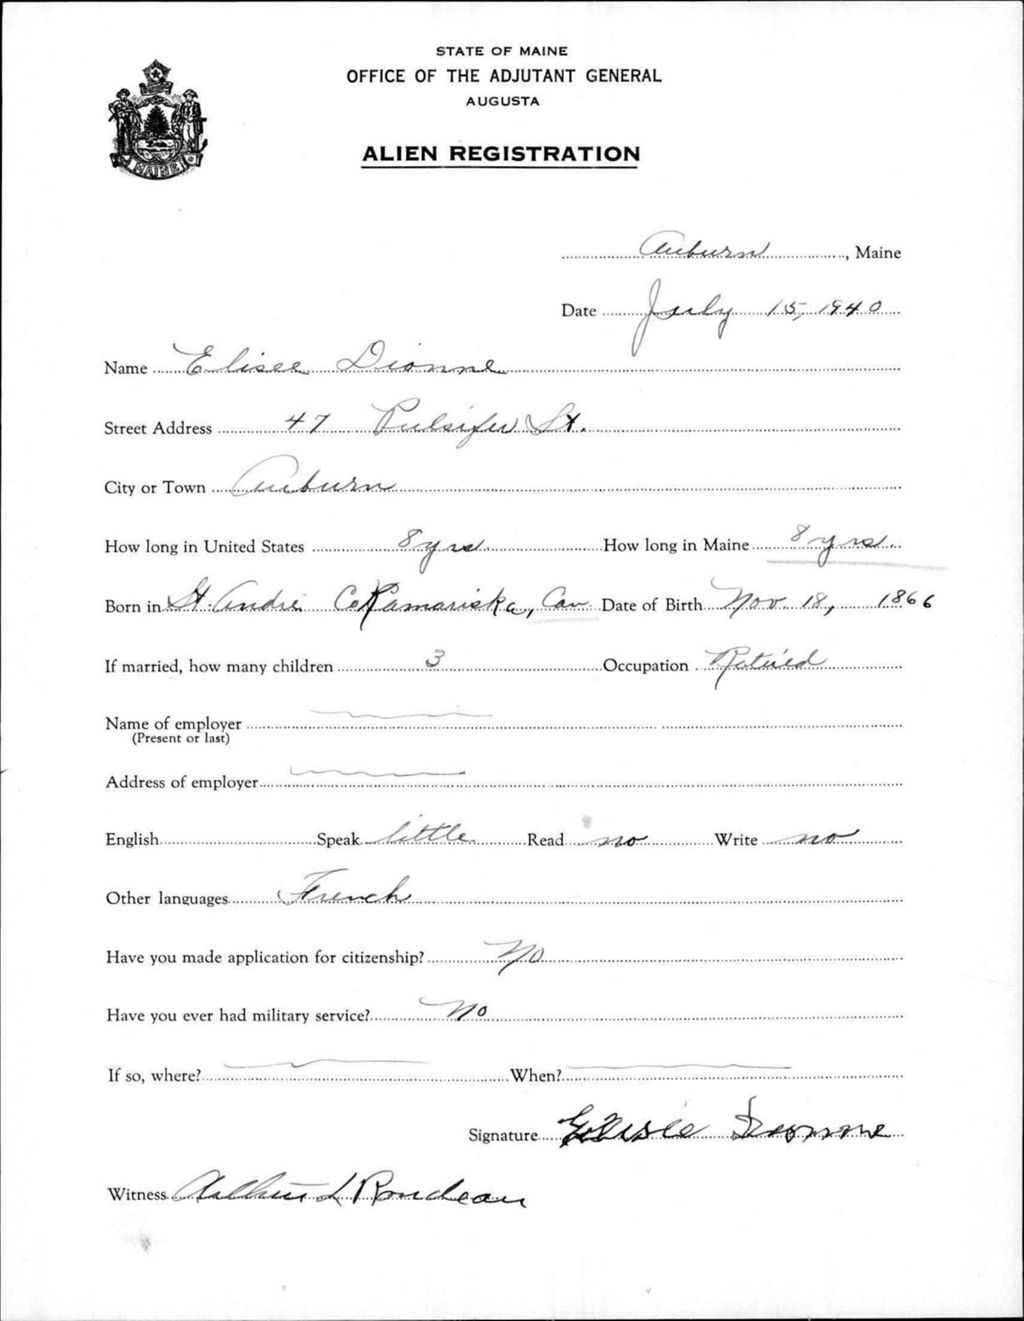 STATE OF MAINE
OFFICE OF THE ADJUTANT GENERAL
AUGUSTA
ALIEN REGISTRATION
MAINE
Auburn, Maine
Date July 15, 1940
Name Elisee Dionne
Street Address 47 Pulsifer St.
City or Town Auburn
How long in United States 8 yrs How long in Maine 8 yrs.
Born in St. Andre Co Kamariska, Can. Date of Birth Nov 18, 1866
If married, how many children 3 Occupation Retired
Name of employer
(Present or last)
Address of employer
English Speak little Read no Write no
Other languages French
Have you made application for citizenship? No
Have you ever had military service? No
If so, where? When?
Signature Dionne
Witness L Rondeau